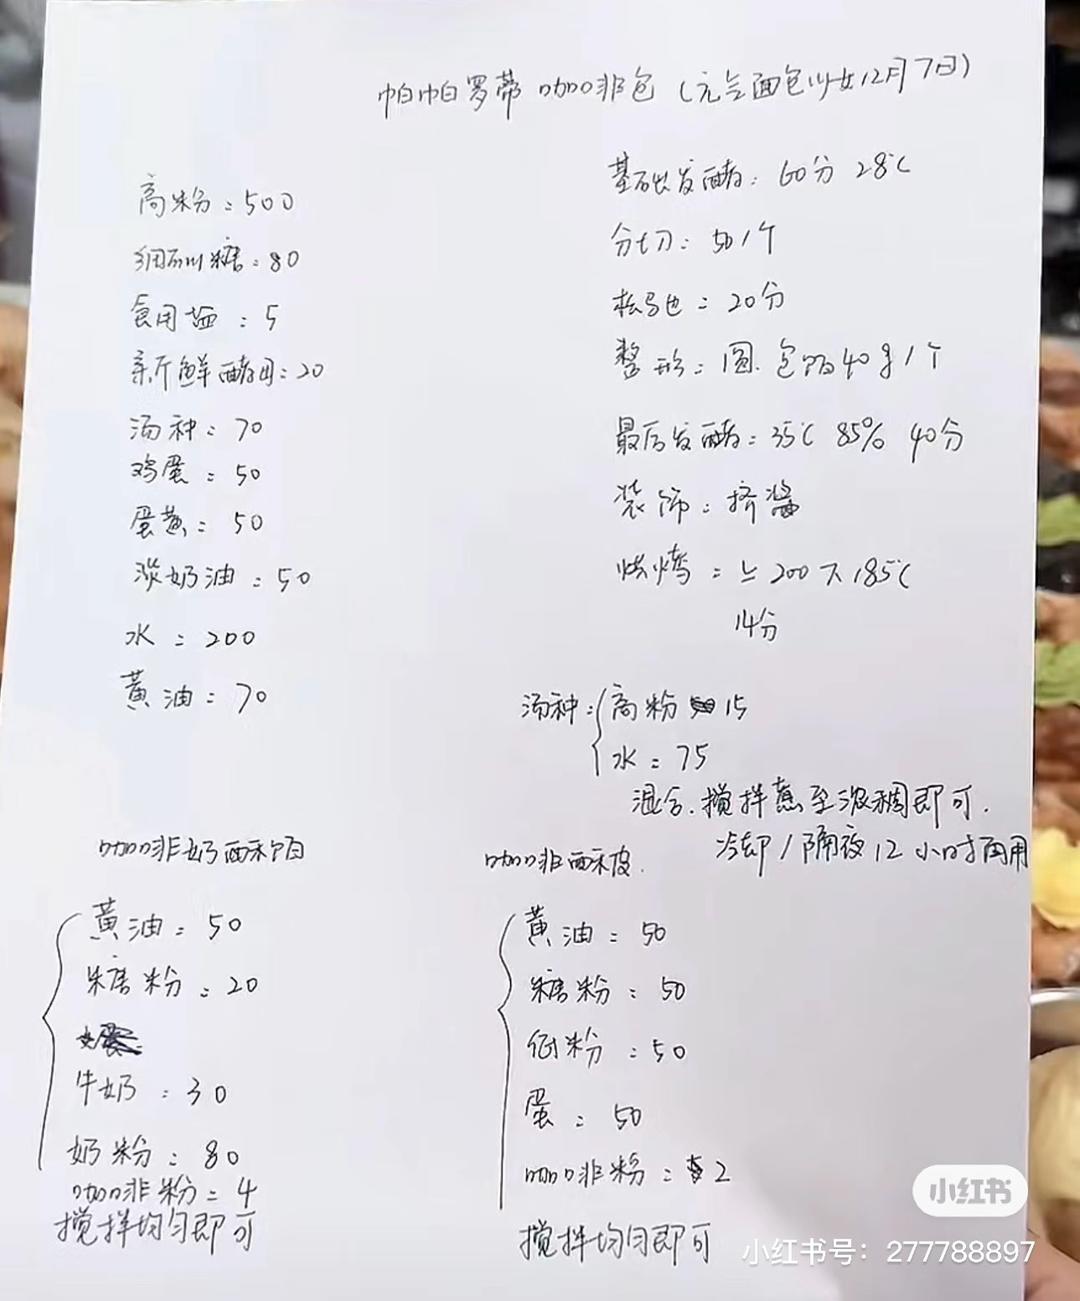 帕帕罗蒂 咖啡包 (元气面包少女12月7日)
高粉:500
细砂糖:80
食用盐:5
新鲜酵母:20
汤种:70
鸡蛋:50
蛋黄:50
淡奶油:50
水:200
黄油:70
基础发酵:60分 28℃
分切:50/个
松弛:20分
整形:圆.包馅40g/个
最后发酵:35℃ 85% 40分
装饰:挤酱
烘烤:上200下185℃
14分
汤种:高粉 15
水:75
混合.搅拌蒸至浓稠即可.
冷却/隔夜12小时再用
咖啡奶酥馅
黄油:50
糖粉:20
牛奶:30
奶粉:80
咖啡粉:4
搅拌均匀即可
咖啡酥皮.
黄油:50
糖粉:50
低粉:50
蛋:50
咖啡粉:2
搅拌均匀即可
小红书
小红书号:277788897